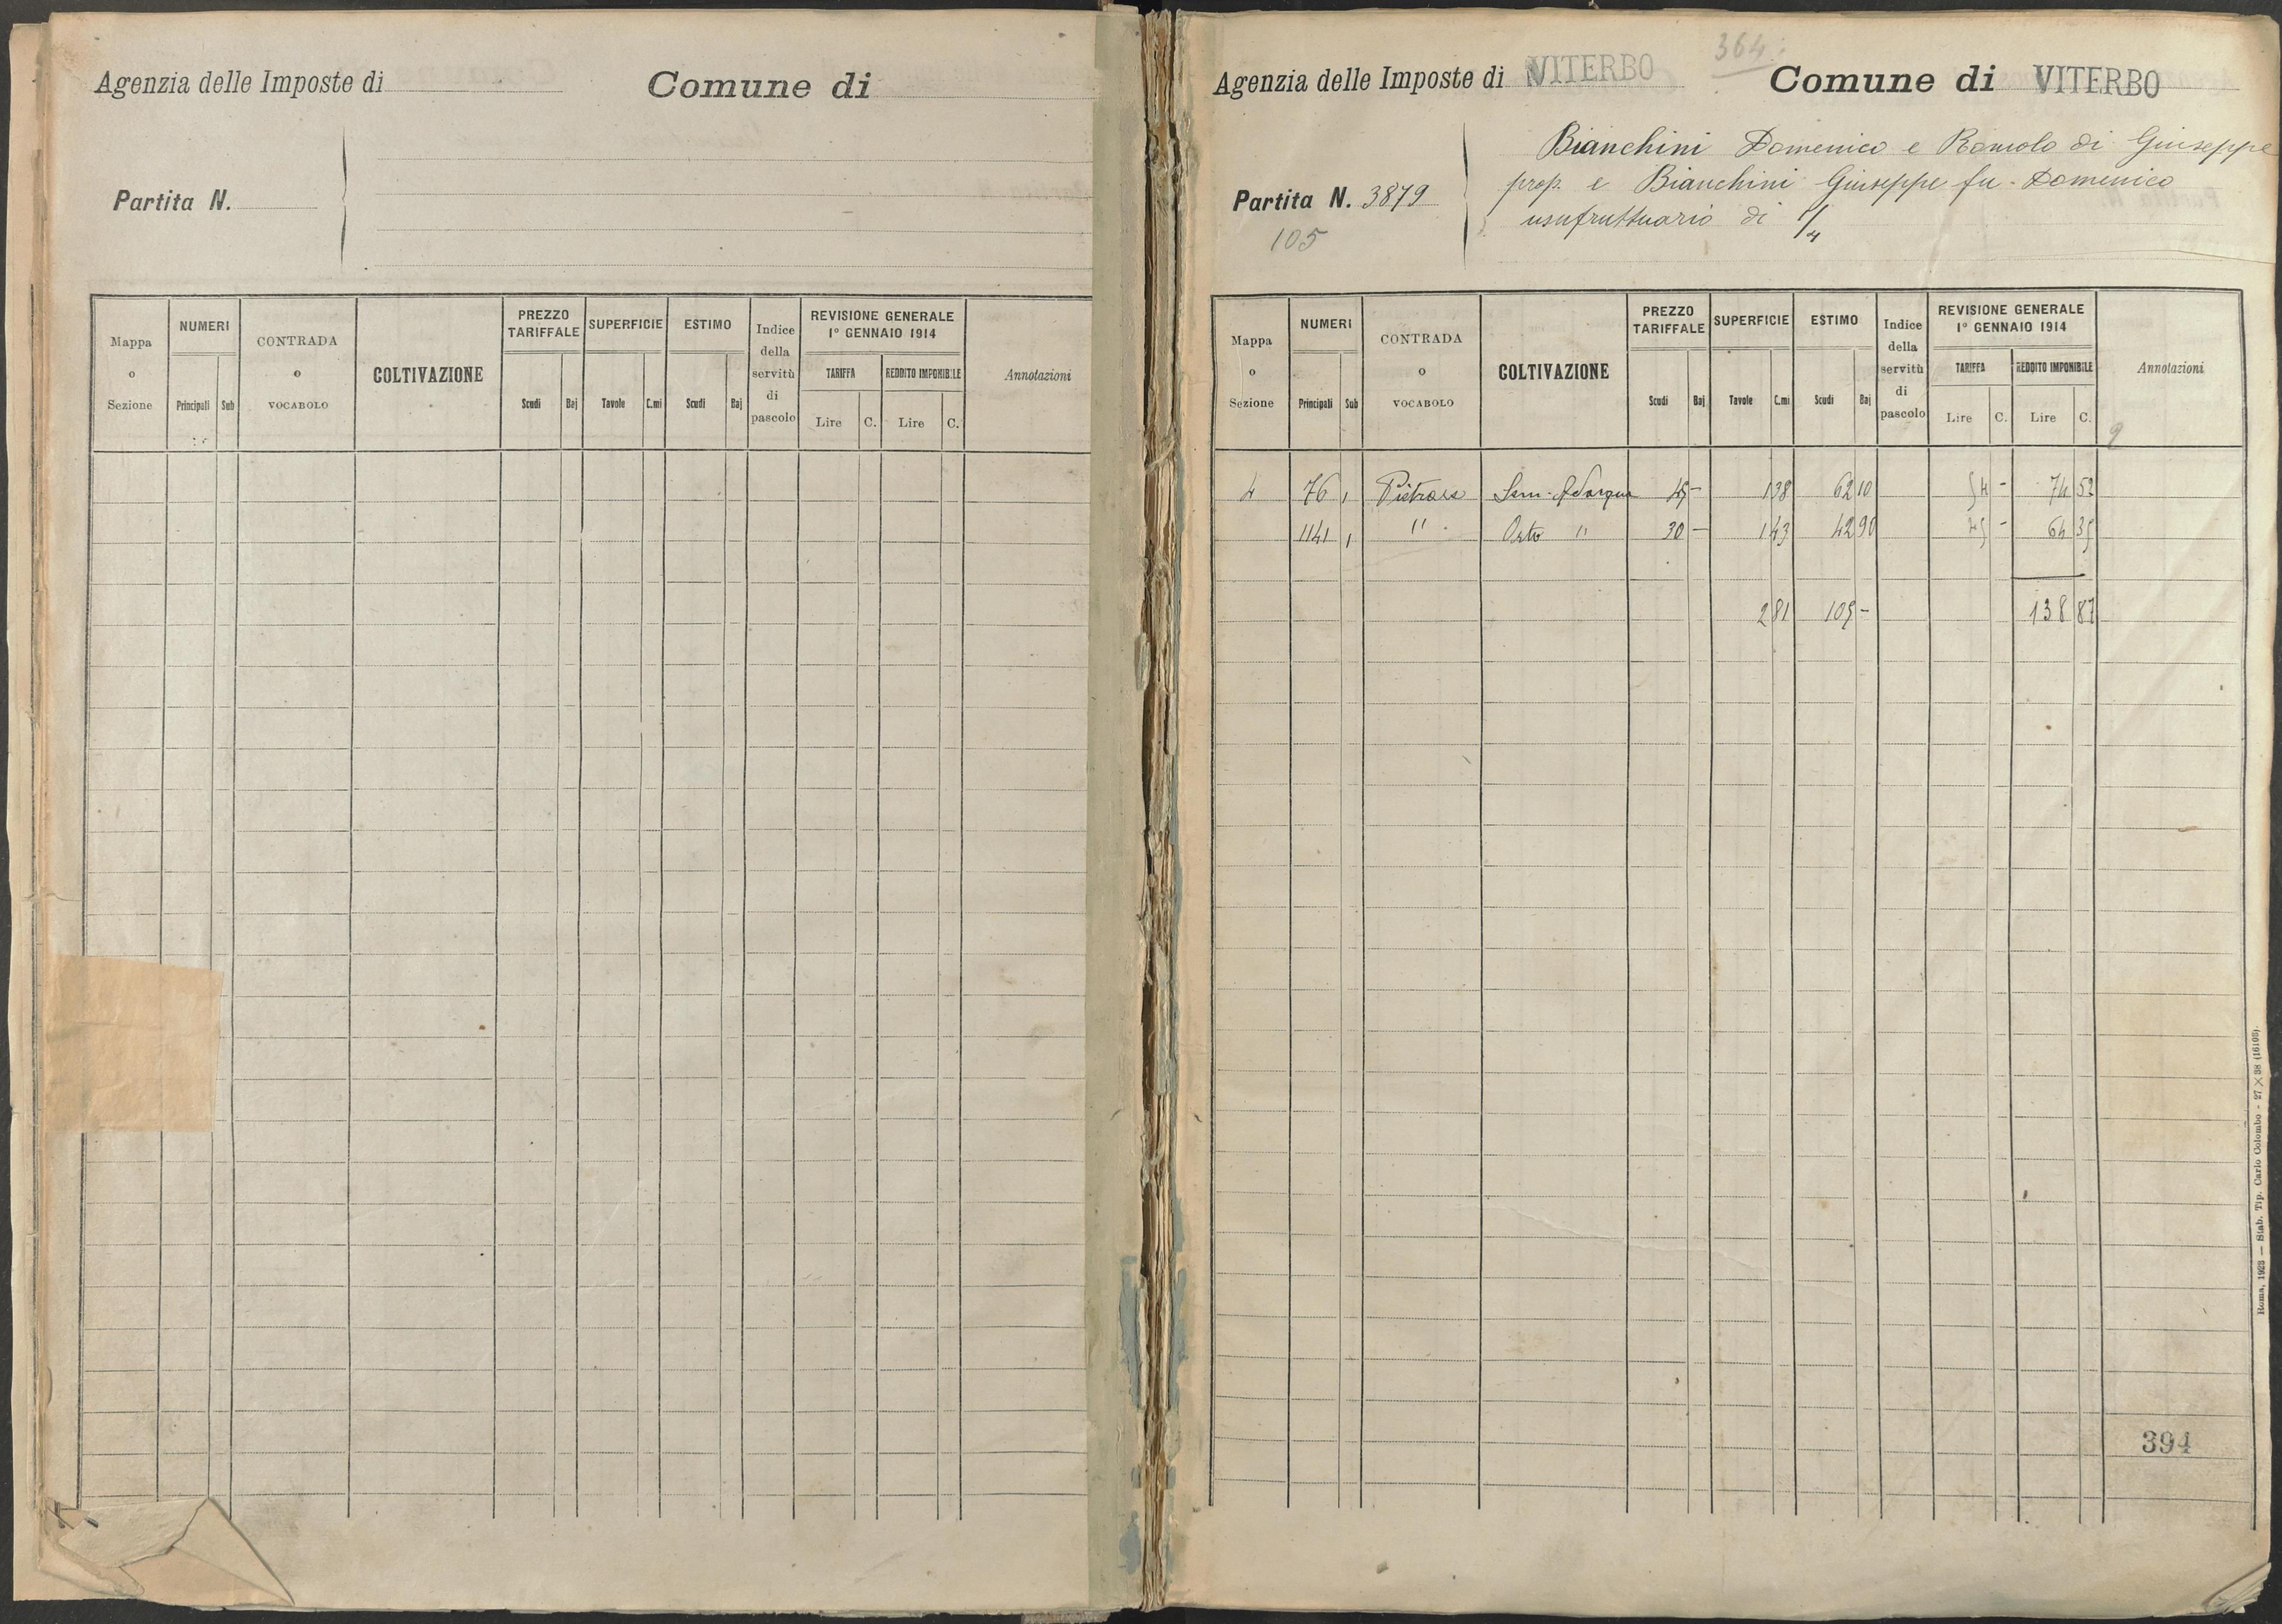 Agenzia delle Imposte di
Comune di
Partita N.
Mappa o Sezione
NUMERI
Principali Sub
CONTRADA o VOCABOLO
COLTIVAZIONE
PREZZO TARIFFALE
Scudi Baj
SUPERFICIE
Tavole C.mi
ESTIMO
Scudi Baj
Indice della servitù di pascolo
REVISIONE GENERALE
1° GENNAIO 1914
TARIFFA REDDITO IMPONIBILE
Lire C. Lire C.
Annotazioni
364
Agenzia delle Imposte di VITERBO Comune di VITERBO
Bianchini Domenico e Romolo di Giuseppe
prop. e Bianchini Giuseppe fu Domenico
usufruttuario di 1/4
Partita N. 3879
105
Mappa o Sezione
NUMERI
Principali Sub
CONTRADA o VOCABOLO
COLTIVAZIONE
PREZZO TARIFFALE
Scudi Baj
SUPERFICIE
Tavole C.mi
ESTIMO
Scudi Baj
Indice della servitù di pascolo
REVISIONE GENERALE
1° GENNAIO 1914
TARIFFA REDDITO IMPONIBILE
Lire C. Lire C.
Annotazioni
4 76 1 Sem. Adacqua 45 - 1 38 62 10 54 - 74 52
1141 1 " Orto " 30 - 1 43 42 90 45 - 64 35
2 81 105 - 138 87
394
Roma, 1923 — Stab. Tip. Carlo Colombo - 27 × 38 (16108).